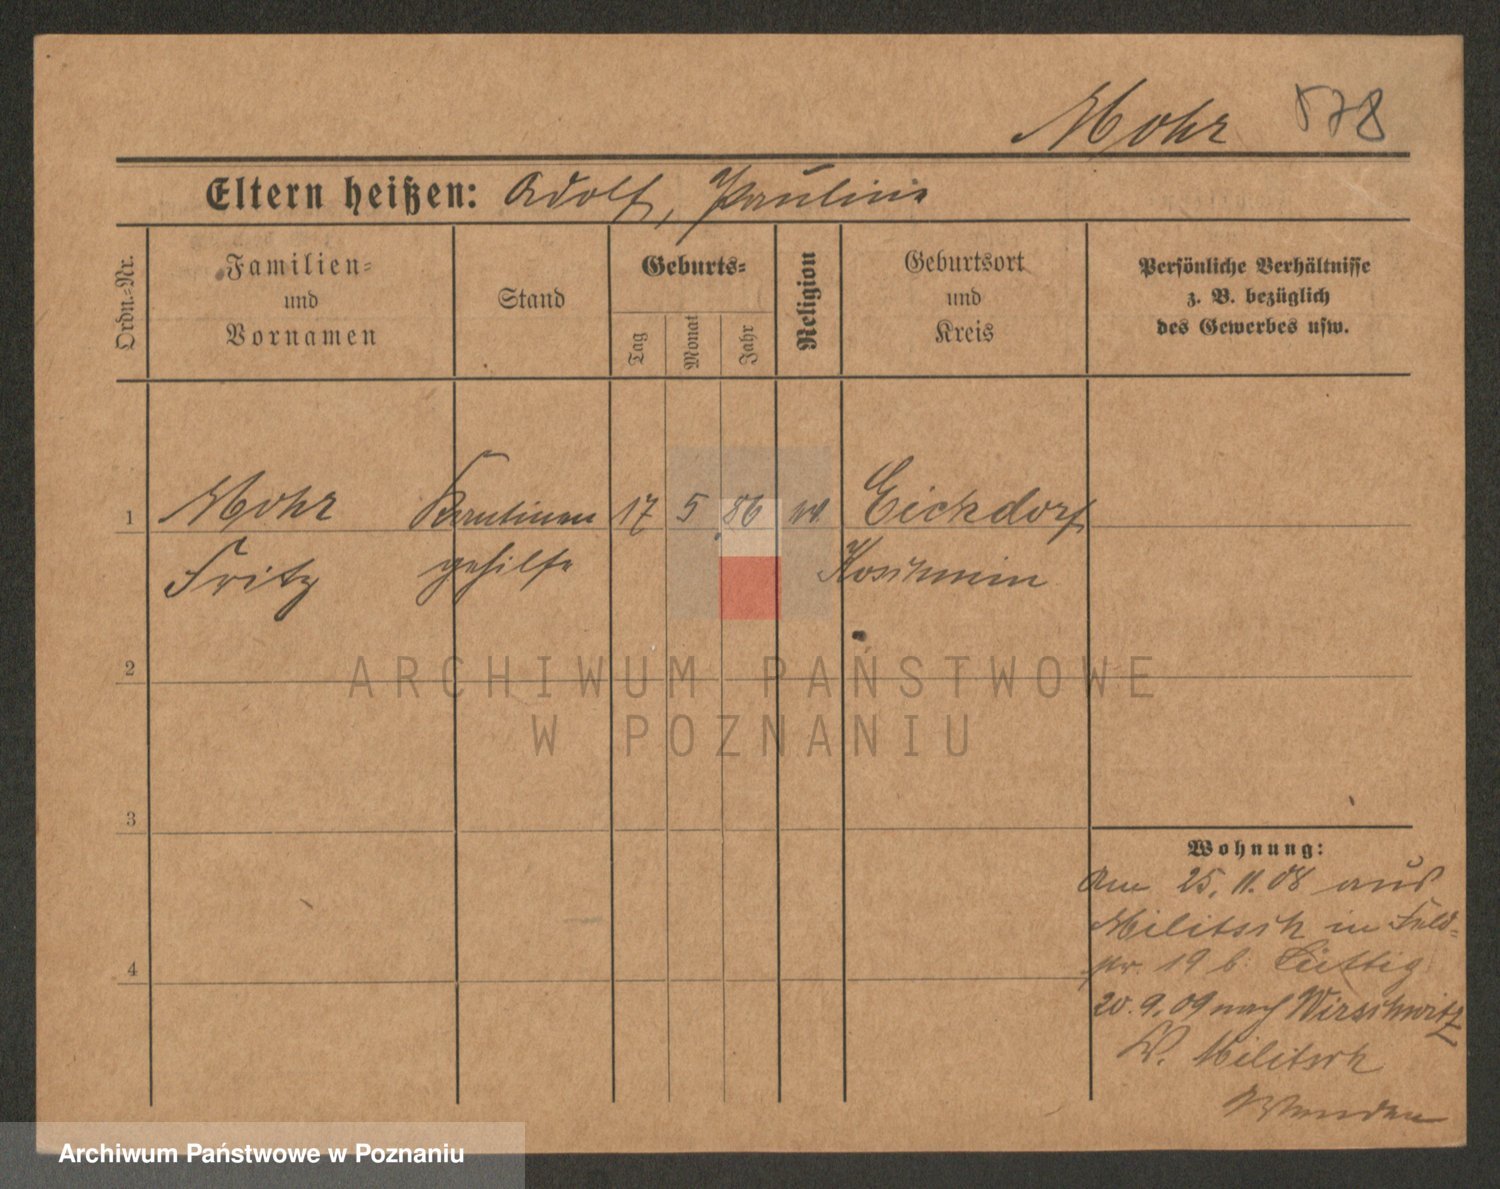 Mohr 578
Eltern heißen: Adolf, Pauline
Ordn.-Nr.
Familien-
und
Vornamen
Stand
Geburts-
Tag
Monat
Jahr
Religion
Geburtsort
und
Kreis
Persönliche Verhältnisse
z. B. bezüglich
des Gewerbes usw.
1 Mohr Kantinen 17 5 86 Eickdorf
Fritz gehilfe Koschmin
2
3
4
Wohnung:
Am 25. 11. 08 aus
Militsch in Feld-
19 b. Lüttig
20. 9. 09 nach Wirschkowitz
Militsch
Wenden
ARCHIWUM PAŃSTWOWE
W POZNANIU
Archiwum Państwowe w Poznaniu